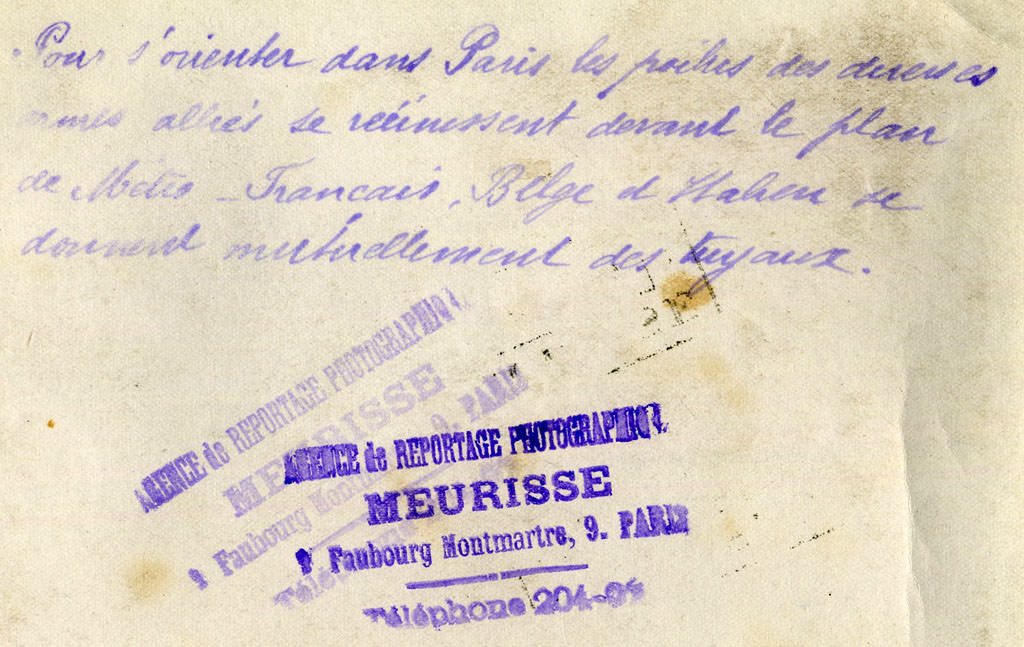 Pour s'orienter dans Paris les poilus des diverses
armées alliés se réunissent devant le plan
de Métro - Francais, Belge et Italien se
donnent mutuellement des tuyaux.
AGENCE de REPORTAGE PHOTOGRAPHIQ
MEURISSE
Faubourg Montmartre, 9. PARIS
AGENCE de REPORTAGE PHOTOGRAPHIQ
MEURISSE
9 Faubourg Montmartre, 9. PARIS
Téléphone 204-